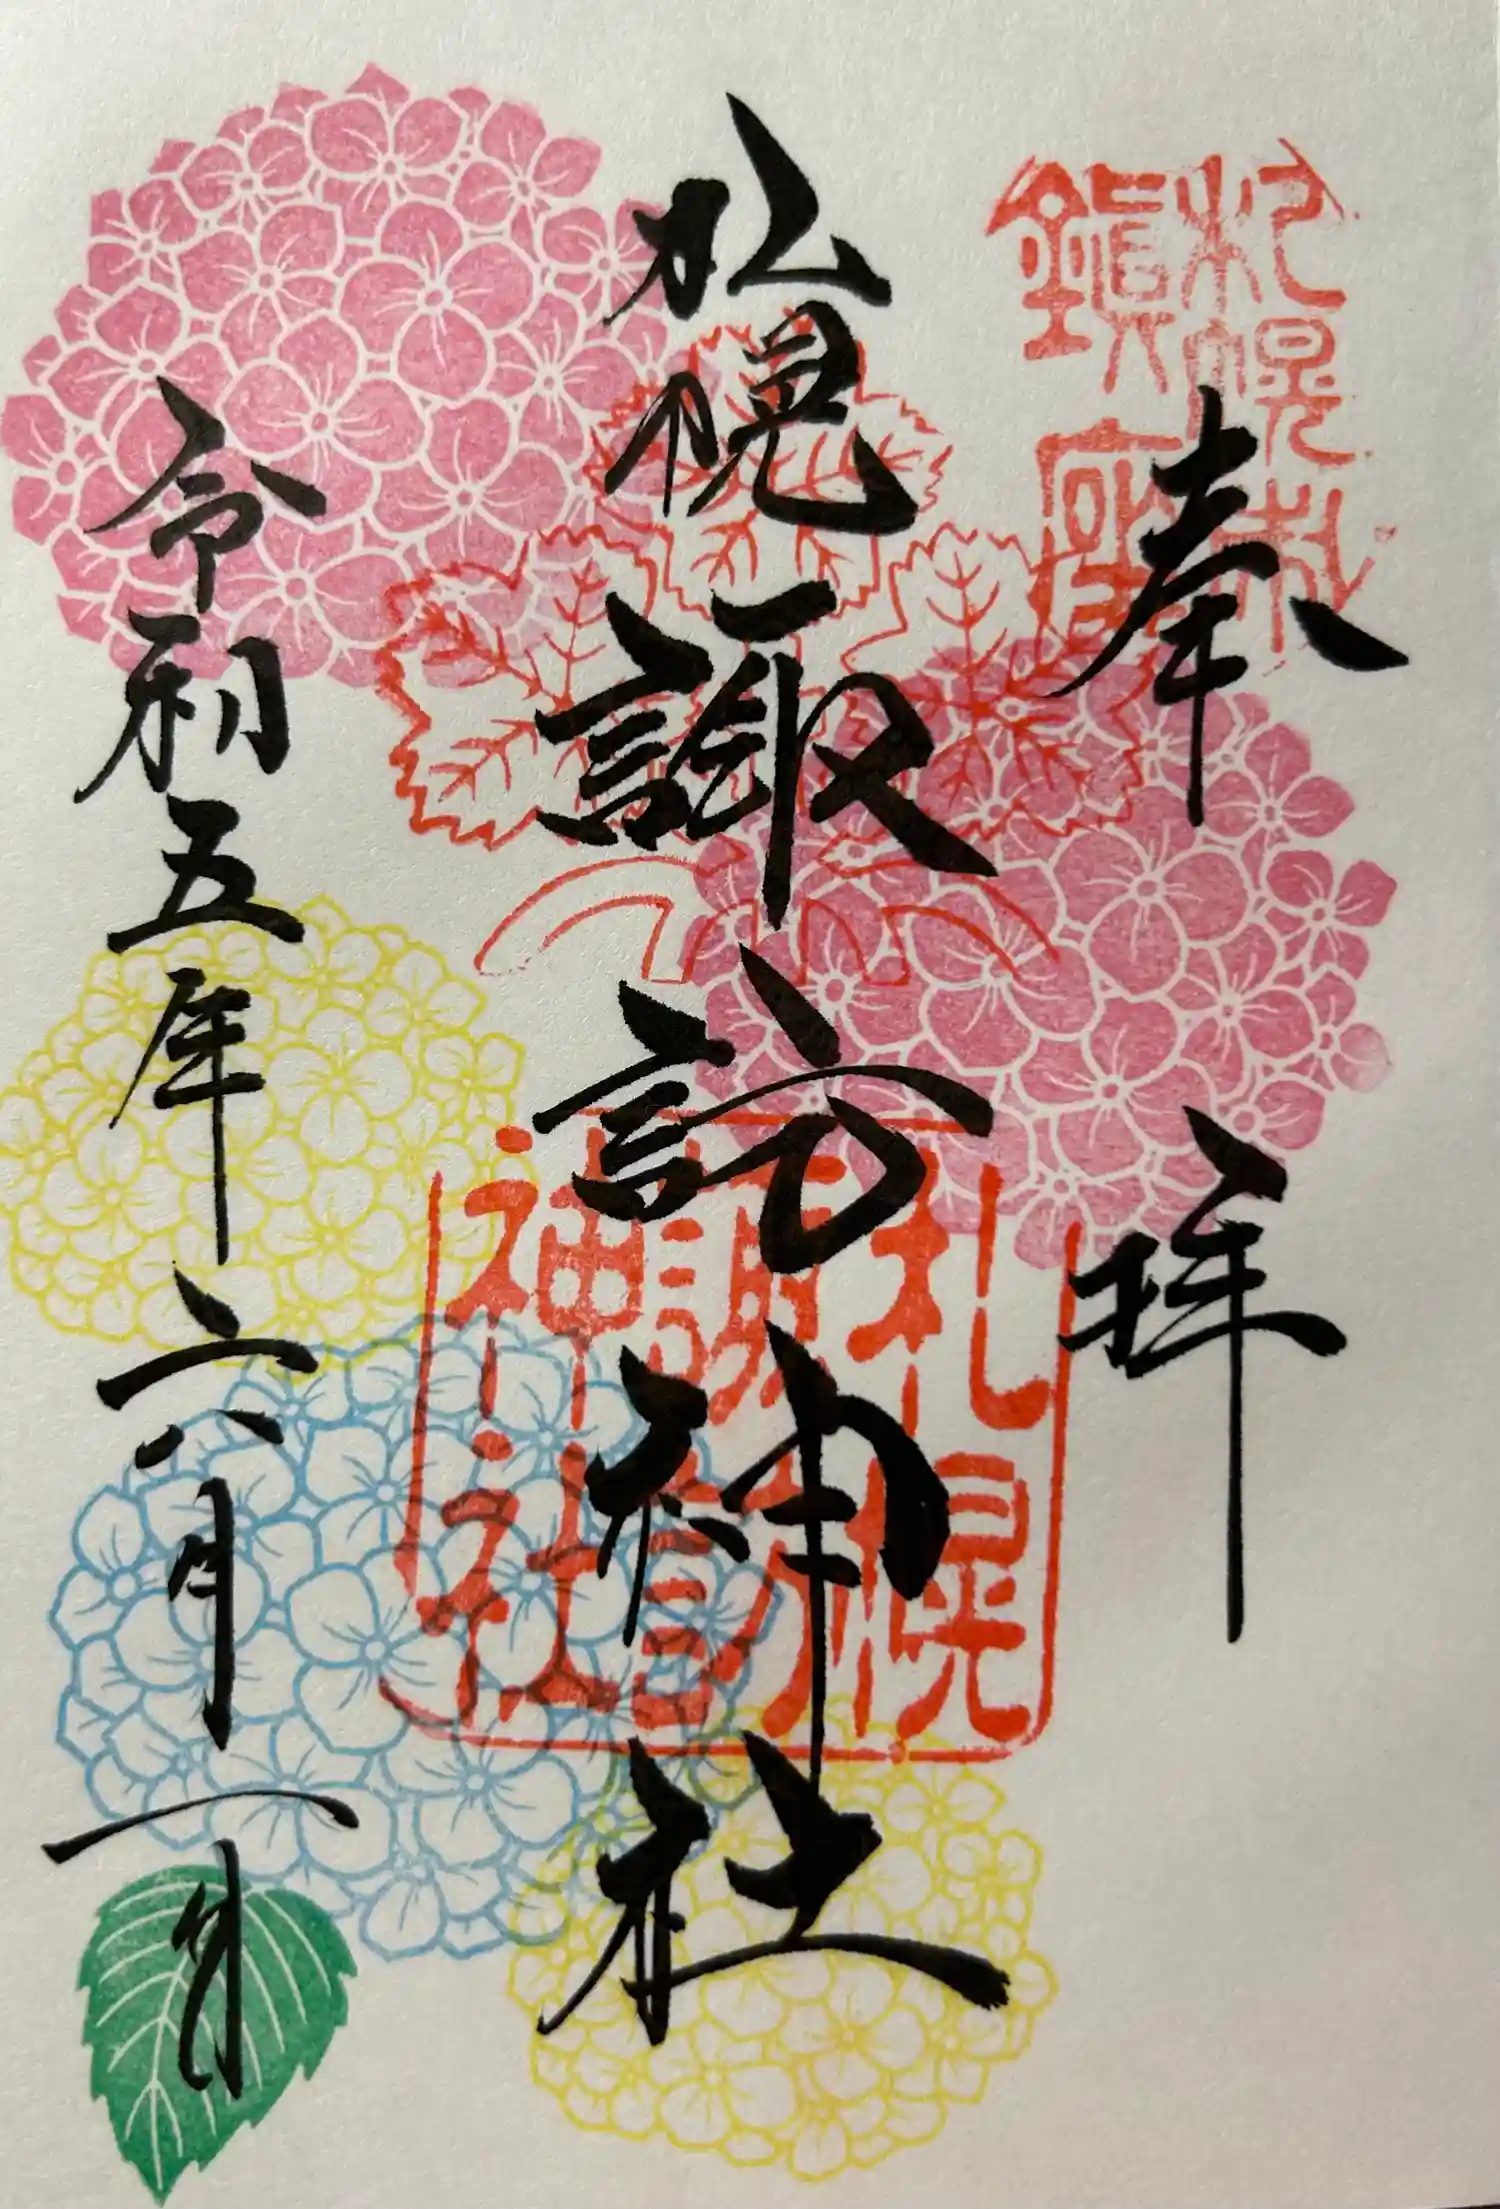 奉拝
札幌諏訪神社
札幌
諏訪
神社
令和五年六月一日